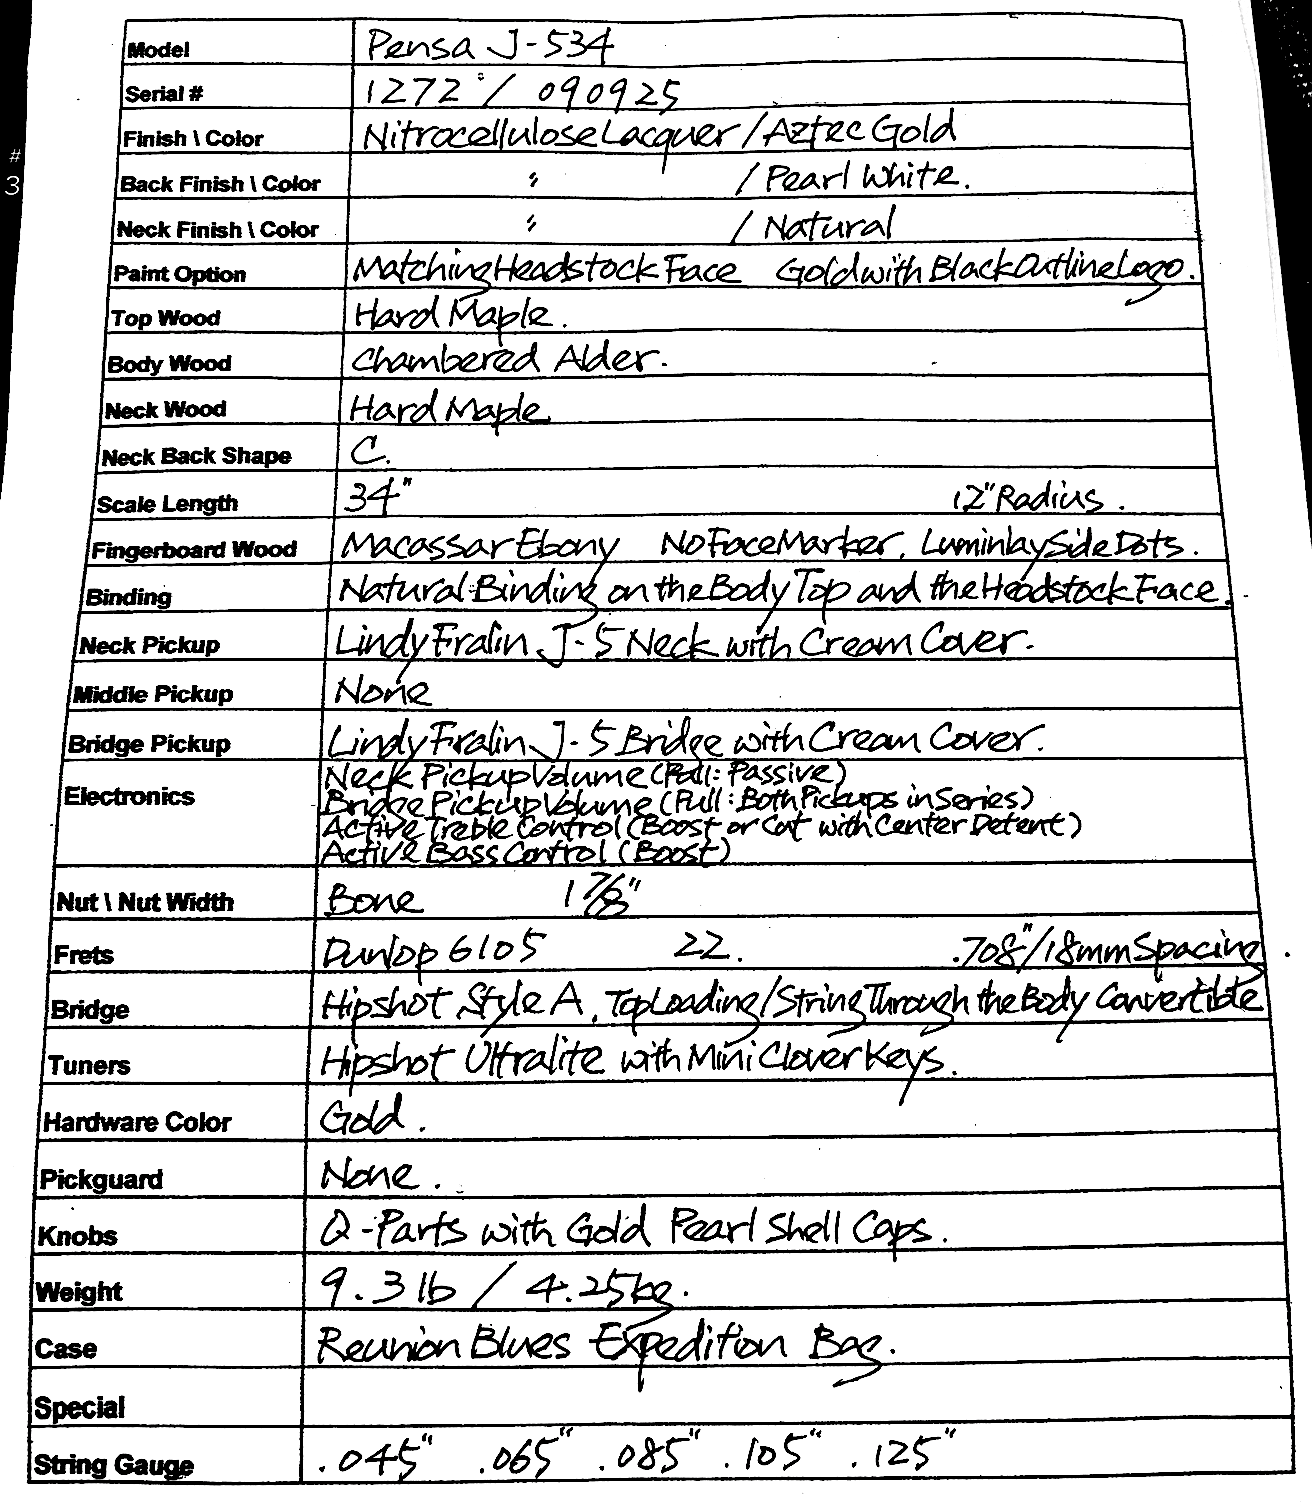 Model Pensa J-534
Serial # 1272 / 090925
Finish \ Color Nitrocellulose Lacquer / Aztec Gold
# 3
Back Finish \ Color " / Pearl White.
Neck Finish \ Color " / Natural
Paint Option Matching Headstock Face Gold with Black Outline Logo.
Top Wood Hard Maple.
Body Wood Chambered Alder.
Neck Wood Hard Maple
Neck Back Shape C.
Scale Length 34" 12" Radius.
Fingerboard Wood Macassar Ebony No Face Marker, Luminlay Side Dots.
Binding Natural Binding on the Body Top and the Headstock Face.
Neck Pickup Lindy Fralin J-5 Neck with Cream Cover.
Middle Pickup None
Bridge Pickup Lindy Fralin J-5 Bridge with Cream Cover.
Electronics Neck Pickup Volume (Pull: Passive)
Bridge Pickup Volume (Pull: Both Pickups in Series)
Active Treble Control (Boost or Cut with Center Detent)
Active Bass Control (Boost)
Nut \ Nut Width Bone 1 7/8"
Frets Dunlop 6105 22. .708"/18mm Spacing.
Bridge Hipshot Style A, Top Loading/String Through the Body Convertible
Tuners Hipshot Ultralite with Mini Clover Keys.
Hardware Color Gold.
Pickguard None.
Knobs Q-Parts with Gold Pearl Shell Caps.
Weight 9.3 lb / 4.25kg.
Case Reunion Blues Expedition Bag.
Special
String Gauge .045" .065" .085" .105" .125"